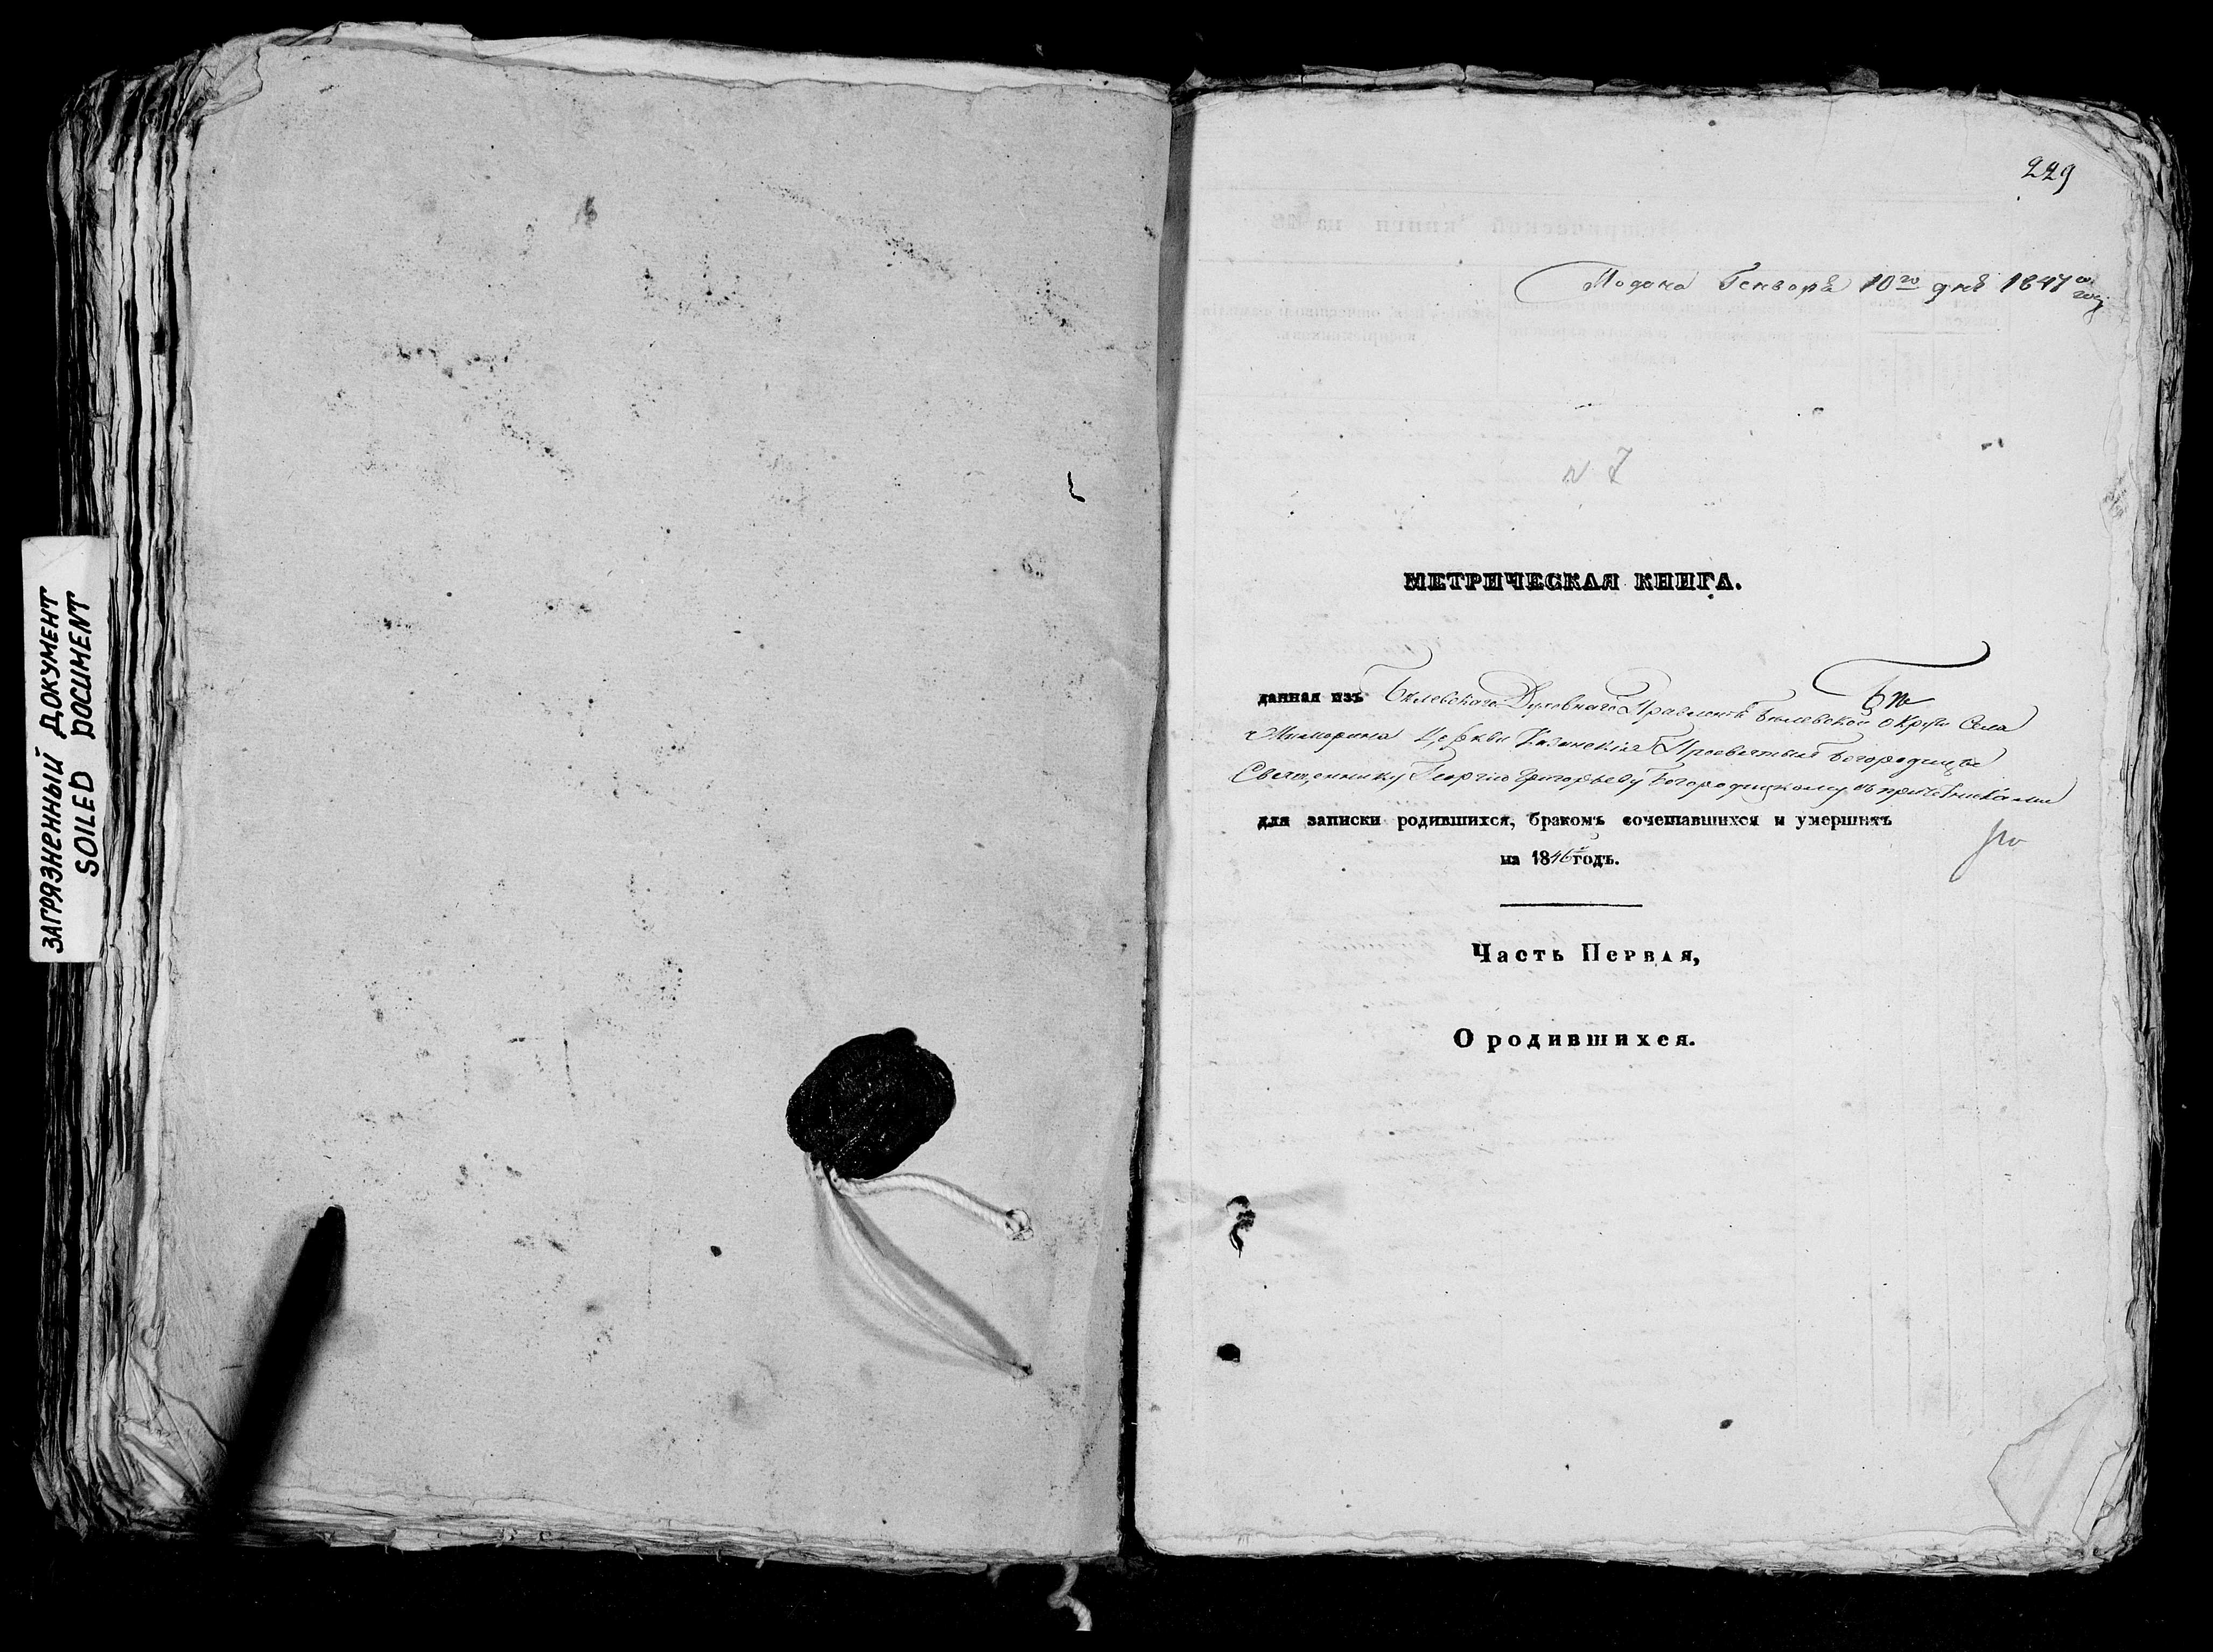 ЗАГРЯЗНЕННЫЙ ДОКУМЕНТ
SOILED DOCUMENT
229
Подана Генваря 10го дня 1847го году
N 7
МЕТРИЧЕСКАЯ КНИГА.
данная изъ Белевскаго Духовнаго Правленія Белевской округи Села
Церкви Казанскія Пресвятыя Богородицы
Священнику Георгію Григорьеву Богородицкому съ причетниками
для записки родившихся, бракомъ сочетавшихся и умершихъ
на 1846й годъ.
Часть Первая,
О родившихся.